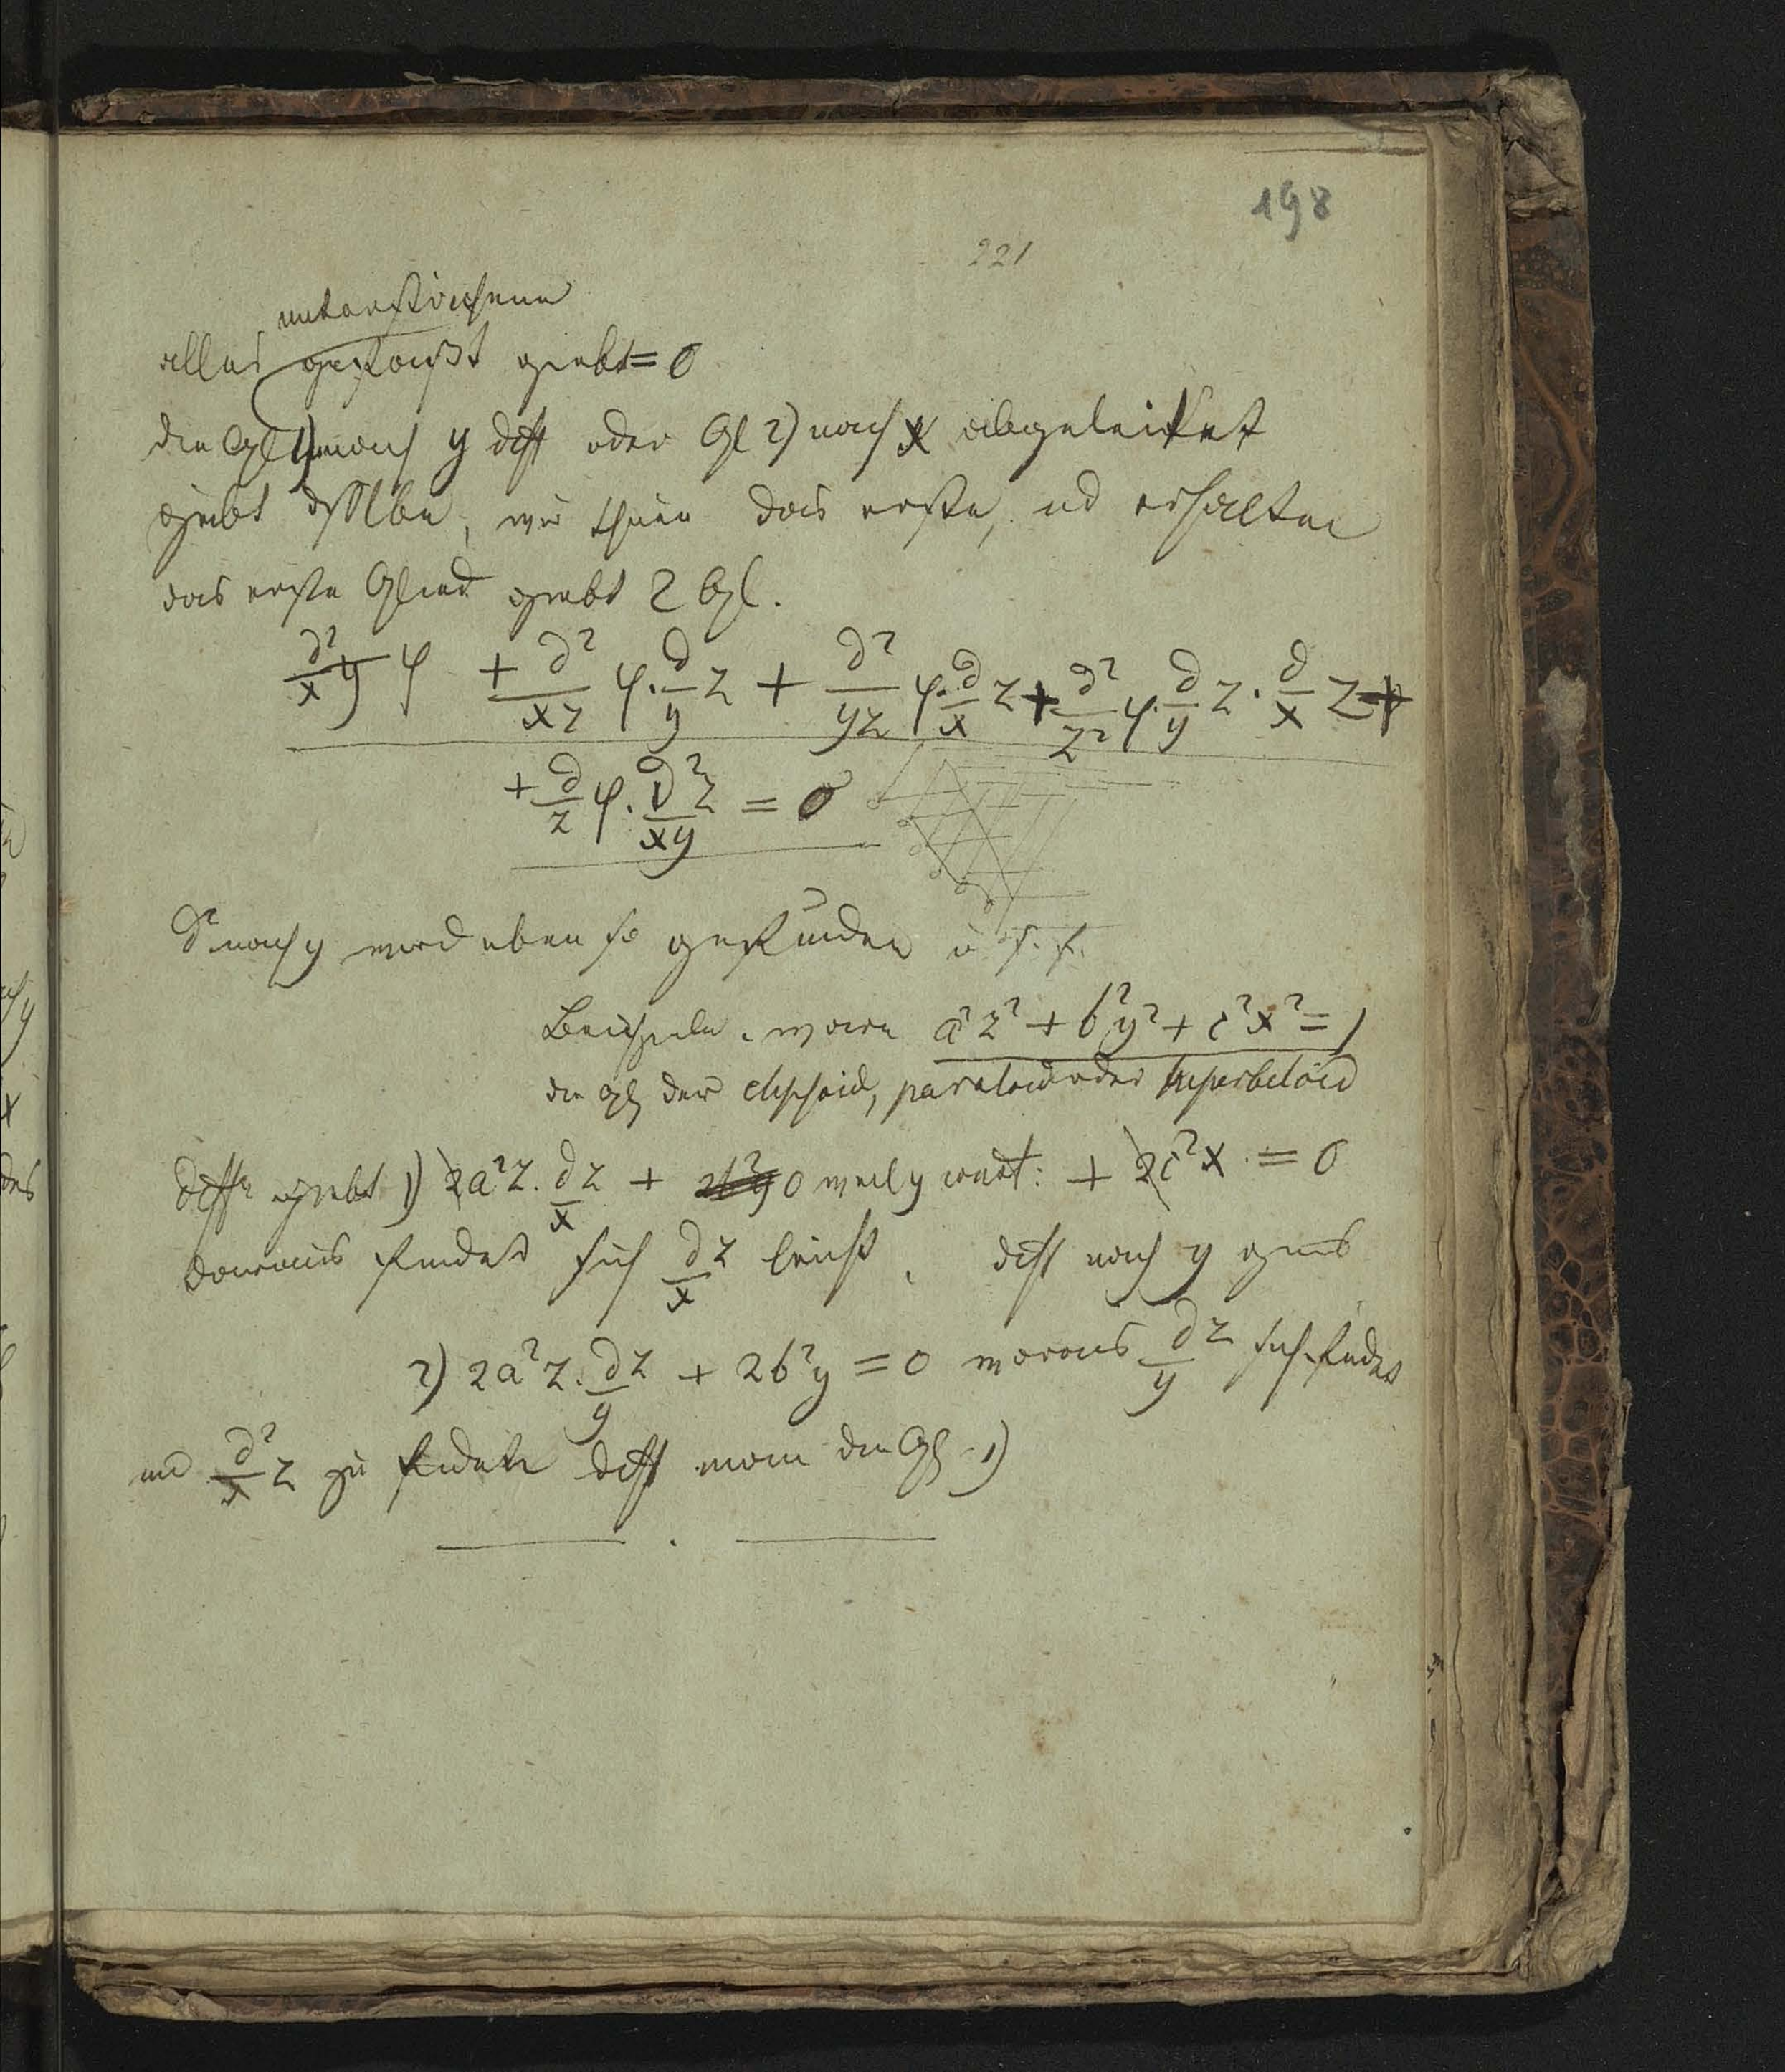 198
221
unterstrichene
alles gesetzt giebt = 0
die Gl 1) nach y diff oder Gl 2) nach x abgeleitet
giebt dsslbe, wir thuen das erste, ud erhalten
das erste Glied giebt 2 Gl.
d²/xy φ + d²/xz φ · d/y z + d²/yz φ · d/x z + d²/z² φ · d/y z · d/x z +
+ d/z φ · d²/xy z = 0
nach y wird eben so gefunden u. s. f.
Beispiele. wäre a²z² + b²y² + c²x² = 1
die Gl der elipsoid, paraboloid oder hiperboloid
diff giebt 1) 2a²z · d/x z + 0 weil y const: + 2c²x = 0
daraus findet sich d/x z leicht, diff nach y giebt
2) 2a²z · d/y z + 2b²y = 0 woraus d/y z sich findet
und d²/x z zu finden diff man die Gl 1)